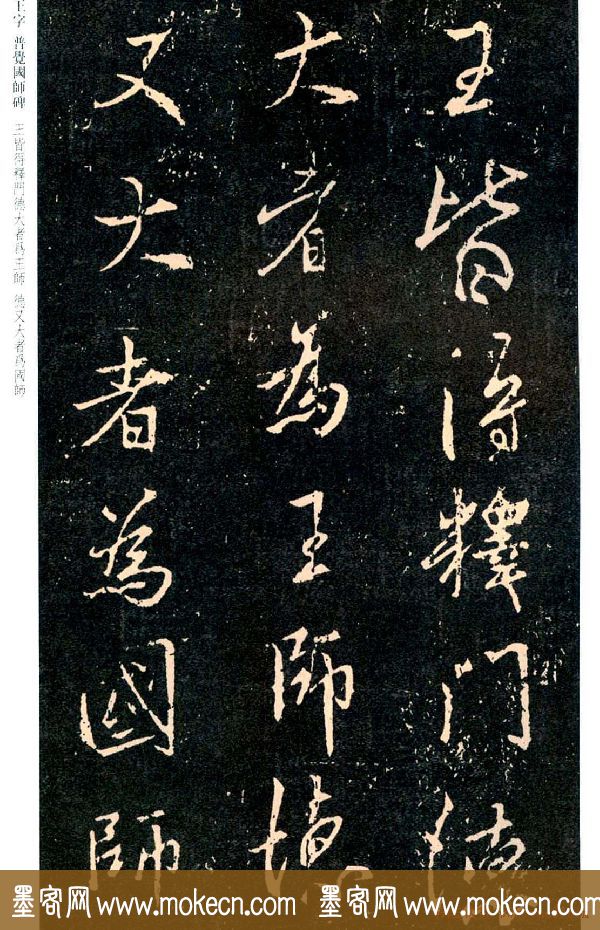 王皆得釋門德
大者為王師德
又大者為國師
王字 普覺國師碑 王皆得釋門德大者爲王師 德又大者爲國師
墨客网 www.mokecn.com 墨客网 www.mokecn.com